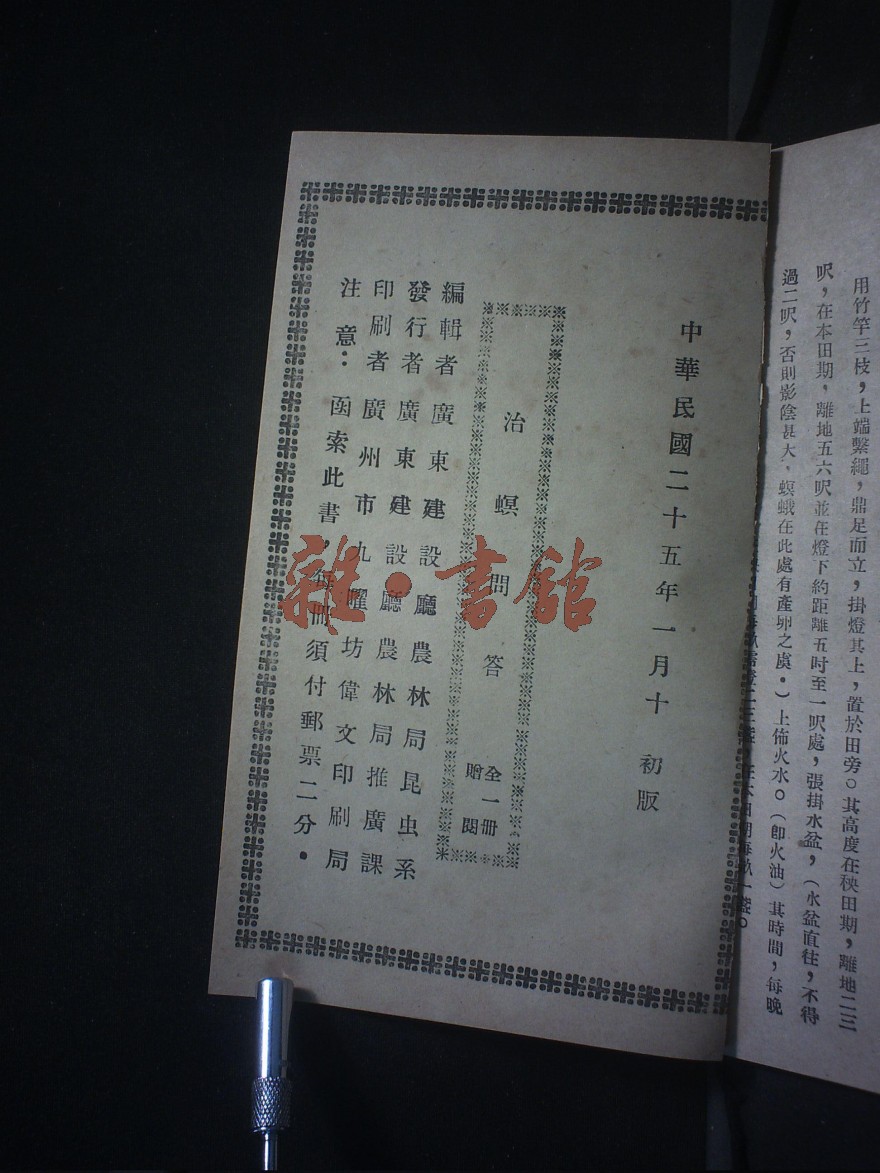 用竹竿三枝，上端繫繩，鼎足而立，掛燈其上，置於田旁。其高度在秧田期，離地二三
呎，在本田期，離地五六呎並在燈下約距離五吋至一呎處，張掛水盆，（水盆直徃，不得
過二呎，否則影陰甚大，螟蛾在此處有產卵之虞。）上佈火水。（卽火油）其時間，每晚
中華民國二十五年一月十 初版
治螟問答
全一冊
贈閱
編輯者 廣東建設廳農林局昆虫系
發行者 廣東建設廳農林局推廣課
印刷者 廣州市九曜坊偉文印刷局
注意：函索此書，每冊須付郵票二分。
雜·書館